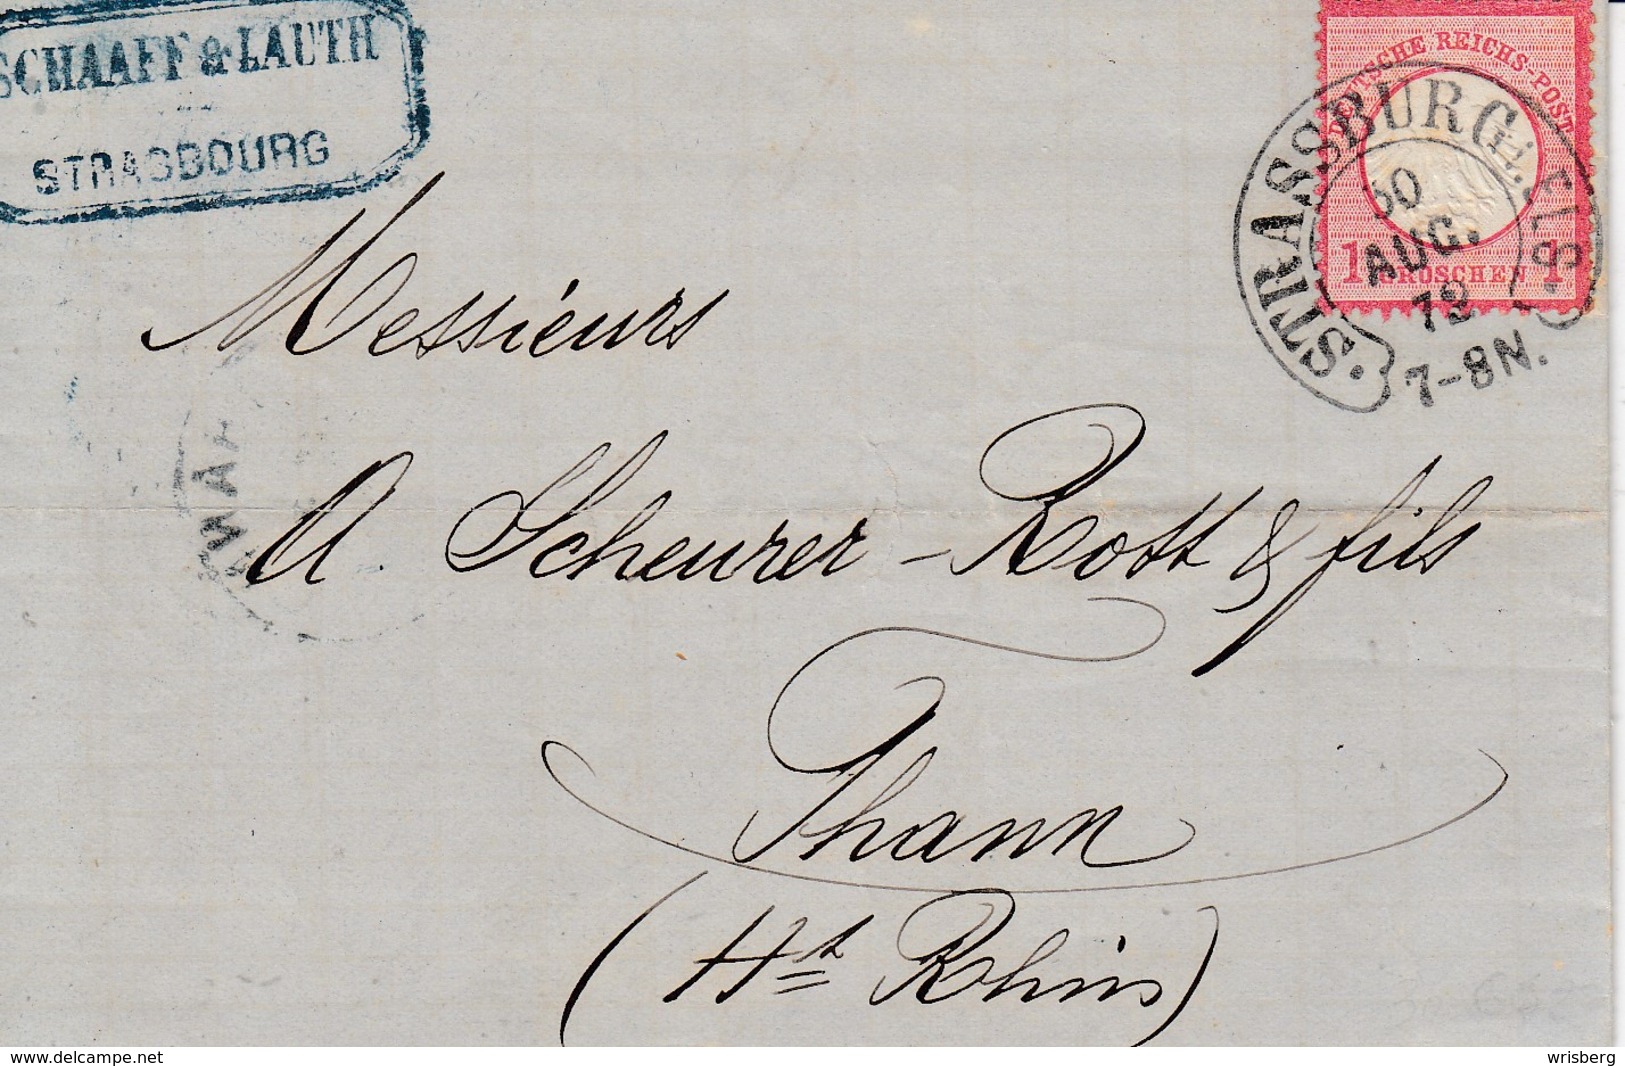 SCHAAFF & LAUTH
STRASBOURG
DEUTSCHE REICHS-POST
1 GROSCHEN 1
STRASSBURG i. ELS.
30
AUG.
72
7-8N.
Messieurs
A. Scheurer-Rott & fils
Thann
(Ht Rhin)
www.delcampe.net
wrisberg